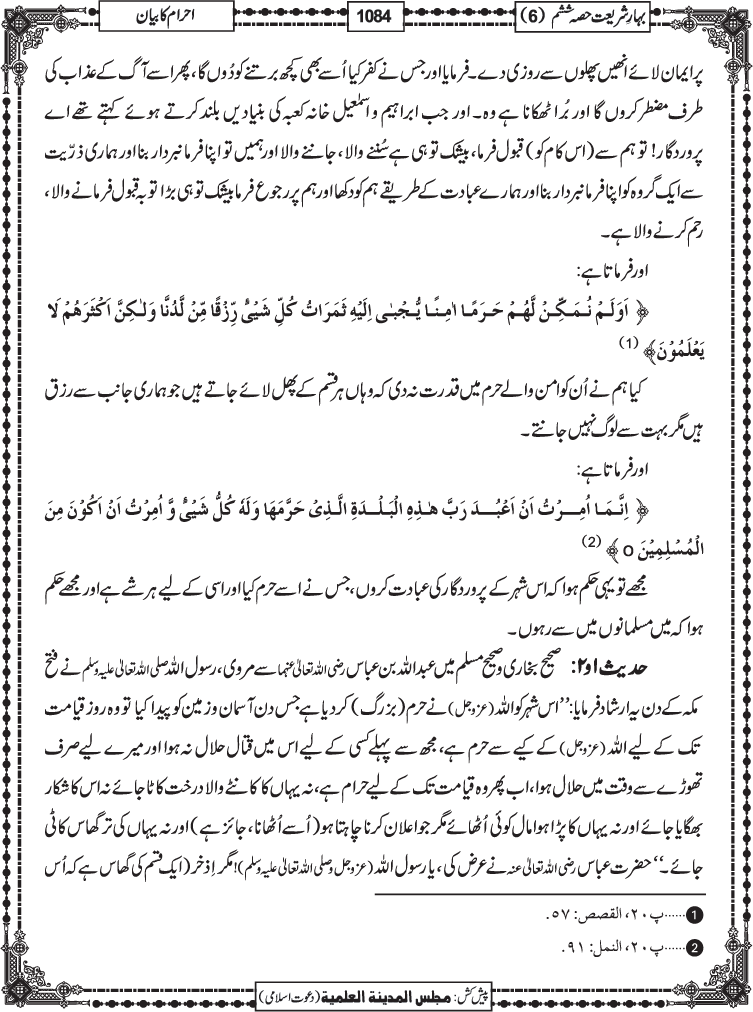 بہارِ شریعت حصہ ششم (6)
1084
احرام کا بیان
پر ایمان لائے انھیں پھلوں سے روزی دے۔ فرمایا اور جس نے کفر کیا اُسے بھی کچھ برتنے کو دُوں گا، پھر اسے آگ کے عذاب کی
طرف مضطر کروں گا اور بُرا ٹھکانا ہے وہ۔ اور جب ابراہیم و اسمٰعیل خانہ کعبہ کی بنیادیں بلند کرتے ہوئے کہتے تھے اے
پروردگار! تو ہم سے (اس کام کو) قبول فرما، بیشک تو ہی ہے سُننے والا، جاننے والا اور ہمیں تو اپنا فرمانبردار بنا اور ہماری ذرّیت
سے ایک گروہ کو اپنا فرمانبردار بنا اور ہمارے عبادت کے طریقے ہم کو دکھا اور ہم پر رجوع فرما بیشک تو ہی بڑا توبہ قبول فرمانے والا،
رحم کرنے والا ہے۔
اور فرماتا ہے:
﴿ اَوَلَمْ نُمَكِّنْ لَّهُمْ حَرَمًا اٰمِنًا یُّجْبٰى اِلَیْهِ ثَمَرَاتُ كُلِّ شَیْءٍ رِّزْقًا مِّنْ لَّدُنَّا وَلٰكِنَّ اَكْثَرَهُمْ لَا
یَعْلَمُوْنَ﴾ (1)
کیا ہم نے اُن کو امن والے حرم میں قدرت نہ دی کہ وہاں ہر قسم کے پھل لائے جاتے ہیں جو ہماری جانب سے رزق
ہیں مگر بہت سے لوگ نہیں جانتے۔
اور فرماتا ہے:
﴿ اِنَّمَا اُمِرْتُ اَنْ اَعْبُدَ رَبَّ هٰذِهِ الْبَلْدَةِ الَّذِیْ حَرَّمَهَا وَلَهٗ كُلُّ شَیْءٍ وَّ اُمِرْتُ اَنْ اَكُوْنَ مِنَ
الْمُسْلِمِیْنَ o ﴾ (2)
مجھے تو یہی حکم ہوا کہ اس شہر کے پروردگار کی عبادت کروں، جس نے اسے حرم کیا اور اسی کے لیے ہر شے ہے اور مجھے حکم
ہوا کہ میں مسلمانوں میں سے رہوں۔
حدیث ۱و۲: صحیح بخاری و صحیح مسلم میں عبداللہ بن عباس رضی اللہ تعالیٰ عنہما سے مروی، رسول اللہ صلی اللہ تعالیٰ علیہ وسلم نے فتح
مکہ کے دن یہ ارشاد فرمایا: ’’اس شہر کو اللہ (عزوجل) نے حرم (بزرگ) کر دیا ہے جس دن آسمان و زمین کو پیدا کیا تو وہ روز قیامت
تک کے لیے اللہ (عزوجل) کے کیے سے حرم ہے، مجھ سے پہلے کسی کے لیے اس میں قتال حلال نہ ہوا اور میرے لیے صرف
تھوڑے سے وقت میں حلال ہوا، اب پھر وہ قیامت تک کے لیے حرام ہے، نہ یہاں کا کانٹے والا درخت کاٹا جائے نہ اس کا شکار
بھگایا جائے اور نہ یہاں کا پڑا ہوا مال کوئی اُٹھائے مگر جو اعلان کرنا چاہتا ہو (اُسے اُٹھانا، جائز ہے) اور نہ یہاں کی تر گھاس کاٹی
جائے۔‘‘ حضرت عباس رضی اللہ تعالیٰ عنہ نے عرض کی، یا رسول اللہ (عزوجل و صلی اللہ تعالیٰ علیہ وسلم)! مگر اِذخر (ایک قسم کی گھاس ہے کہ اُس
1......پ ۲۰، القصص: ۵۷.
2......پ ۲۰، النمل: ۹۱.
پیش کش: مجلس المدینۃ العلمیۃ (دعوتِ اسلامی)